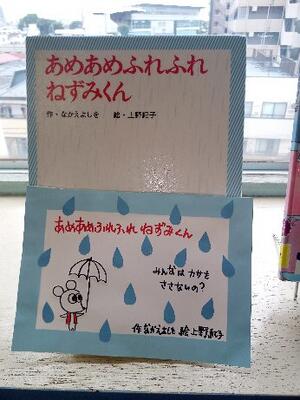 あめあめふれふれ
ねずみくん
作・なかえよしを 絵・上野紀子
あめあめふれふれ ねずみくん
みんなは カサを
ささないの?
作 なかえよしを 絵 上野紀子